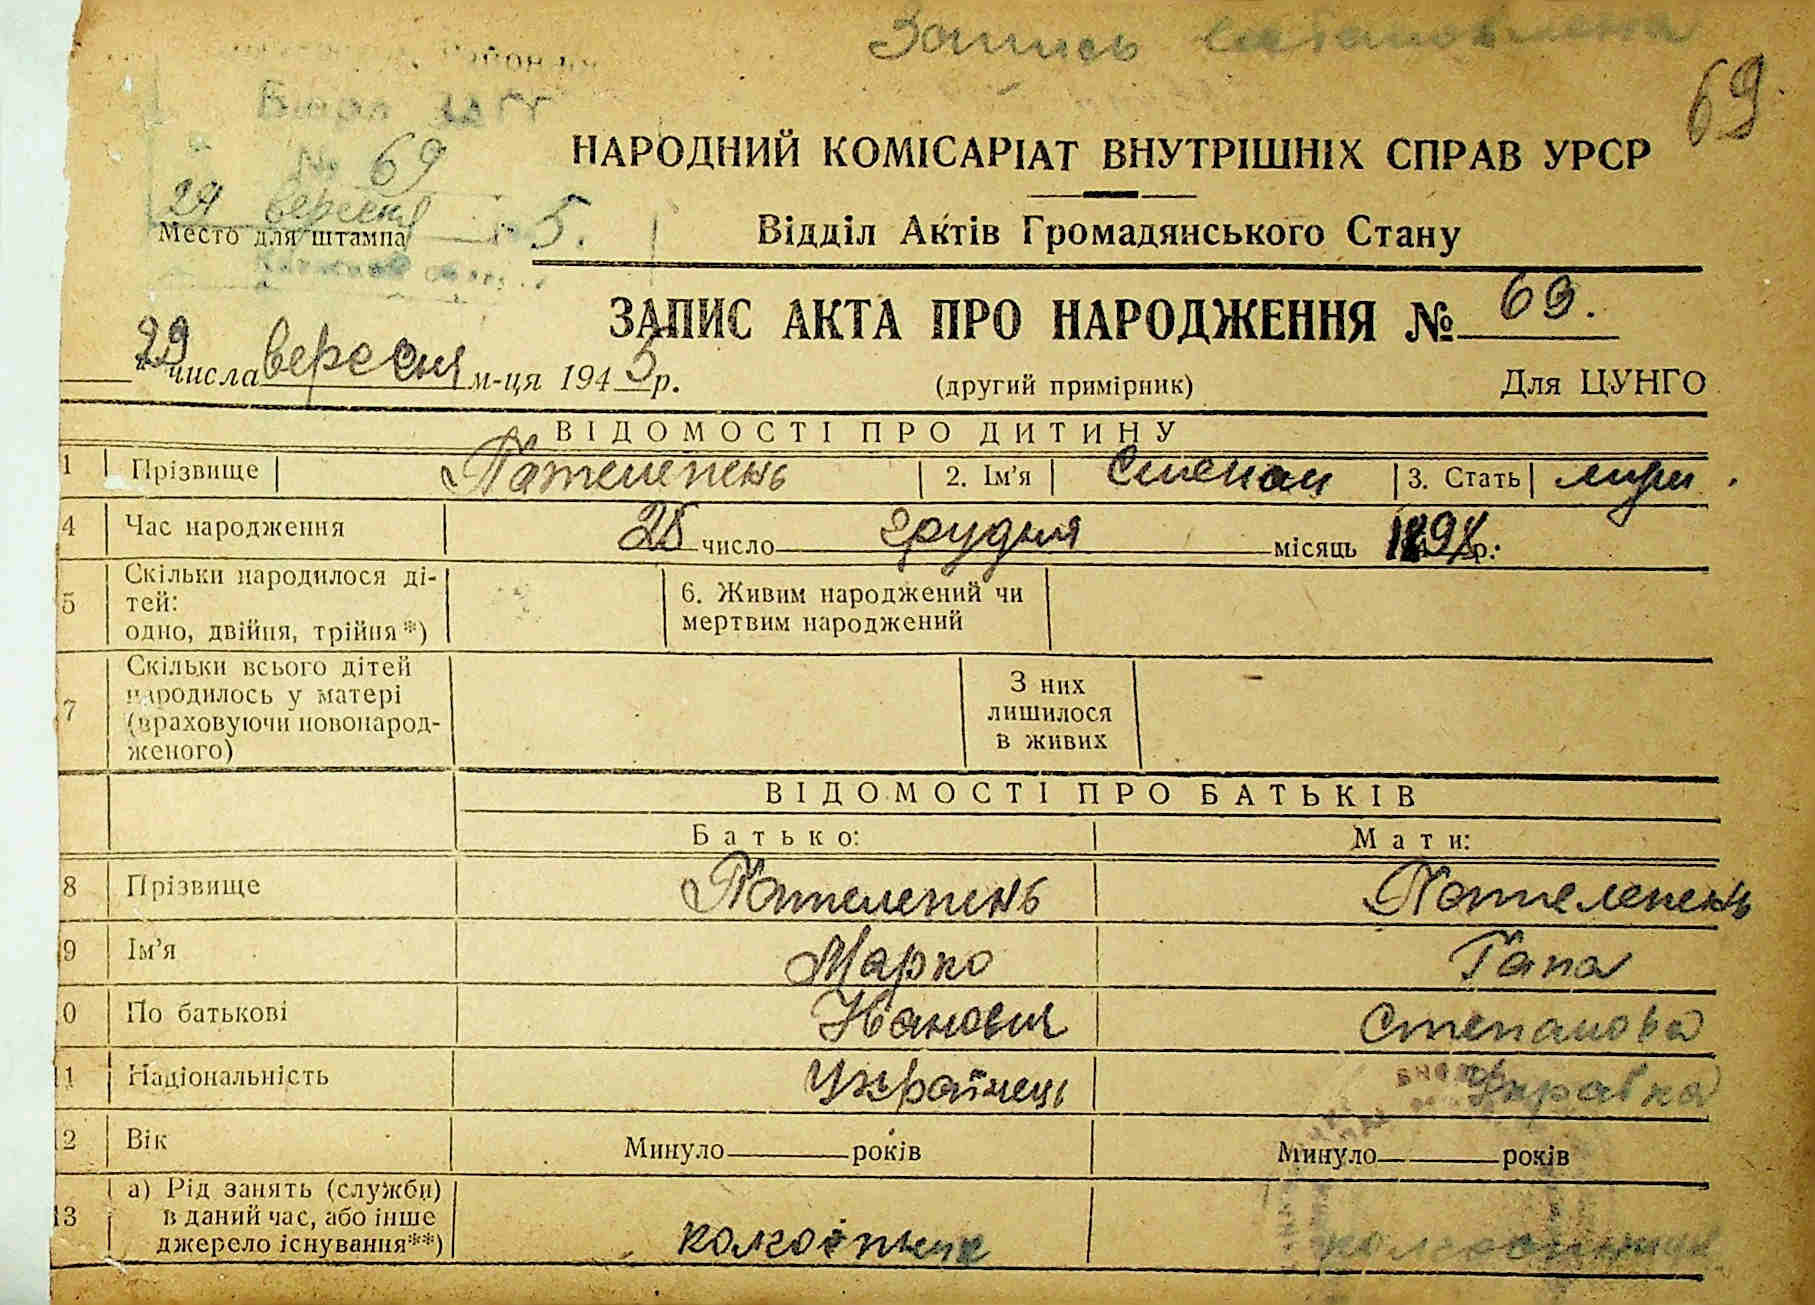 Запись
69
Відділ ЗАГС
№ 69
29 вересня 5.
Место для штампа
НАРОДНИЙ КОМІСАРІАТ ВНУТРІШНІХ СПРАВ УРСР
Відділ Актів Громадянського Стану
ЗАПИС АКТА ПРО НАРОДЖЕННЯ № 69.
29 числа вересня м-ця 1945 р. (другий примірник) Для ЦУНГО
ВІДОМОСТІ ПРО ДИТИНУ
1 Прізвище Пателепень 2. Ім'я Степан 3. Стать муж.
4 Час народження 25 число грудня місяць р.
5 Скільки народилося ді-
тей:
одно, двійня, трійня*)
6. Живим народжений чи
мертвим народжений
7 Скільки всього дітей
народилось у матері
(враховуючи новонарод-
женого)
З них
лишилося
в живих
ВІДОМОСТІ ПРО БАТЬКІВ
Батько: Мати:
8 Прізвище Пателепень Пателепень
9 Ім'я Марко Гапа
0 По батькові Іванович Степанова
11 Національність Українець Укравка
12 Вік Минуло років Минуло років
13 а) Рід занять (служби)
в даний час, або інше
джерело існування**)
колгоспник колгоспниця